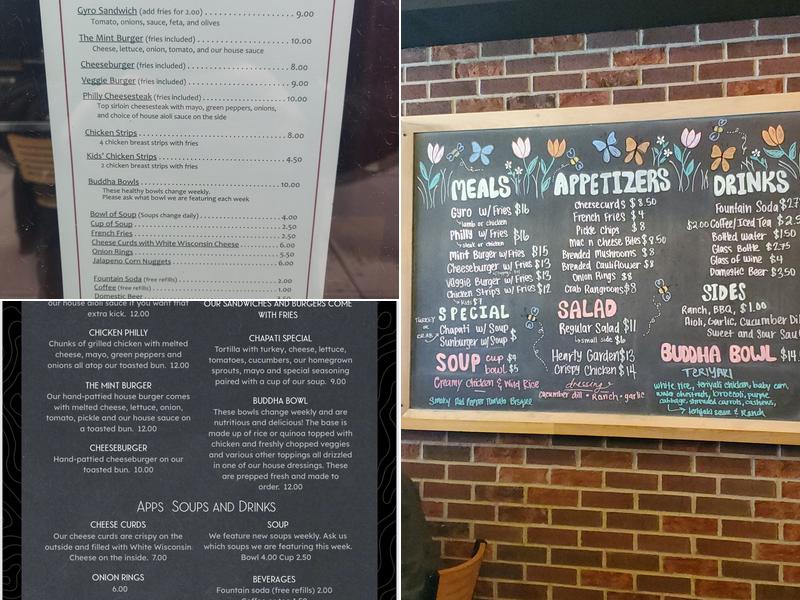 Gyro Sandwich (add fries for 2.00) 9.00
Tomato, onions, sauce, feta, and olives
The Mint Burger (fries included) 10.00
Cheese, lettuce, onion, tomato, and our house sauce
Cheeseburger (fries included) 8.00
Veggie Burger (fries included) 9.00
Philly Cheesesteak (fries included) 10.00
Top sirloin cheesesteak with mayo, green peppers, onions,
and choice of house aioli sauce on the side
Chicken Strips 8.00
4 chicken breast strips with fries
Kids' Chicken Strips 4.50
2 chicken breast strips with fries
Buddha Bowls 10.00
These healthy bowls change weekly.
Please ask what bowl we are featuring each week
Bowl of Soup (Soups change daily) 4.00
Cup of Soup 2.50
French Fries 2.50
Cheese Curds with White Wisconsin Cheese 6.00
Onion Rings 5.00
Jalapeno Corn Nuggets 6.00
Fountain Soda (free refills) 2.00
Coffee (free refills) 1.00
Domestic Beer
our house aioli sauce if you want that
extra kick. 12.00
CHICKEN PHILLY
Chunks of grilled chicken with melted
cheese, mayo, green peppers and
onions all atop our toasted bun. 12.00
THE MINT BURGER
Our hand-pattied house burger comes
with melted cheese, lettuce, onion,
tomato, pickle and our house sauce on
a toasted bun. 12.00
CHEESEBURGER
Hand-pattied cheeseburger on our
toasted bun. 10.00
OUR SANDWICHES AND BURGERS COME
WITH FRIES
CHAPATI SPECIAL
Tortilla with turkey, cheese, lettuce,
tomatoes, cucumbers, our homegrown
sprouts, mayo and special seasoning
paired with a cup of our soup. 9.00
BUDDHA BOWL
These bowls change weekly and are
nutritious and delicious! The base is
made up of rice or quinoa topped with
chicken and freshly chopped veggies
and various other toppings all drizzled
in one of our house dressings. These
are prepped fresh and made to
order. 12.00
APPS SOUPS AND DRINKS
CHEESE CURDS
Our cheese curds are crispy on the
outside and filled with White Wisconsin
Cheese on the inside. 7.00
ONION RINGS
6.00
SOUP
We feature new soups weekly. Ask us
which soups we are featuring this week.
Bowl 4.00 Cup 2.50
BEVERAGES
Fountain soda (free refills) 2.00
MEALS
Gyro w/ Fries $16
lamb or chicken
Philly w/ Fries $16
steak or chicken
Mint Burger w/Fries $15
Cheeseburger w/Fries $13
Veggie Burger w/Fries $13
Chicken Strips w/Fries $12
SPECIAL
TURKEY
or
Chapati w/ Soup $
Sunburger w/ Soup
SOUP cup $4
bowl $5
Creamy Chicken & Wild Rice
Smoky Red Pepper Tomato Bisque
APPETIZERS
Cheesecurds $8.50
French Fries $4
Pickle Chips $8
Mac n cheese Bites $8.50
Breaded Mushrooms $8
Breaded Cauliflower $8
Onion Rings $8
Crab Rangoons $8
SALAD
Regular Salad $11
small side $6
Hearty Garden $13
Crispy Chicken $14
dressing
cucumber dill • Ranch • garlic
DRINKS
Fountain Soda $2.7
$2.00 Coffee/Iced Tea $2.5
Bottled Water $1.50
Glass Bottle $2.75
Glass of Wine $4
Domestic Beer $3.50
SIDES
Ranch, BBQ, $1.00
Aioli, Garlic, Cucumber Dil
Sweet and Sour Sau
BUDDHA BOWL $14.
TERIYAKI
white rice, teriyaki chicken, baby corn,
water chestnuts, broccoli, purple
cabbage, shredded carrots, cashews,
teriyaki sauce & Ranch